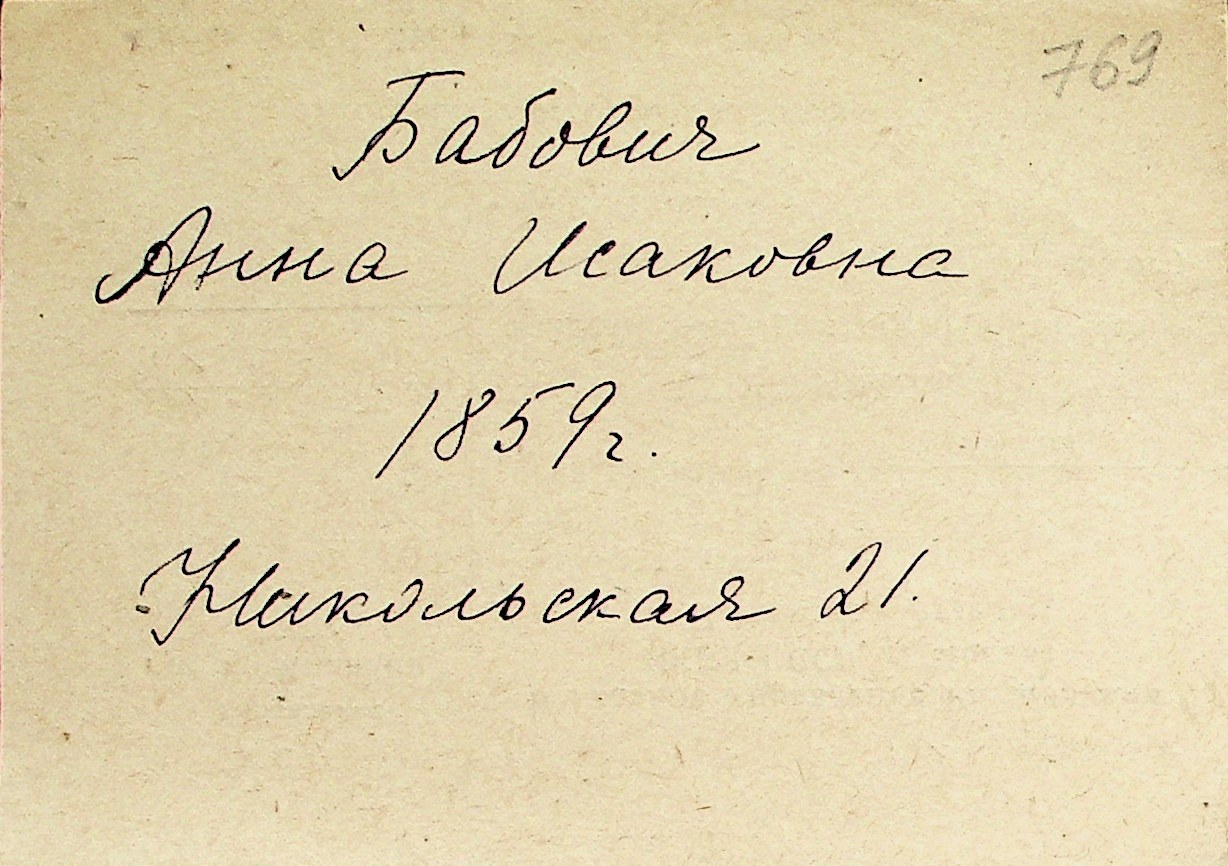 769
Бабович
Анна Исаковна
1859г.
Никольская 21.